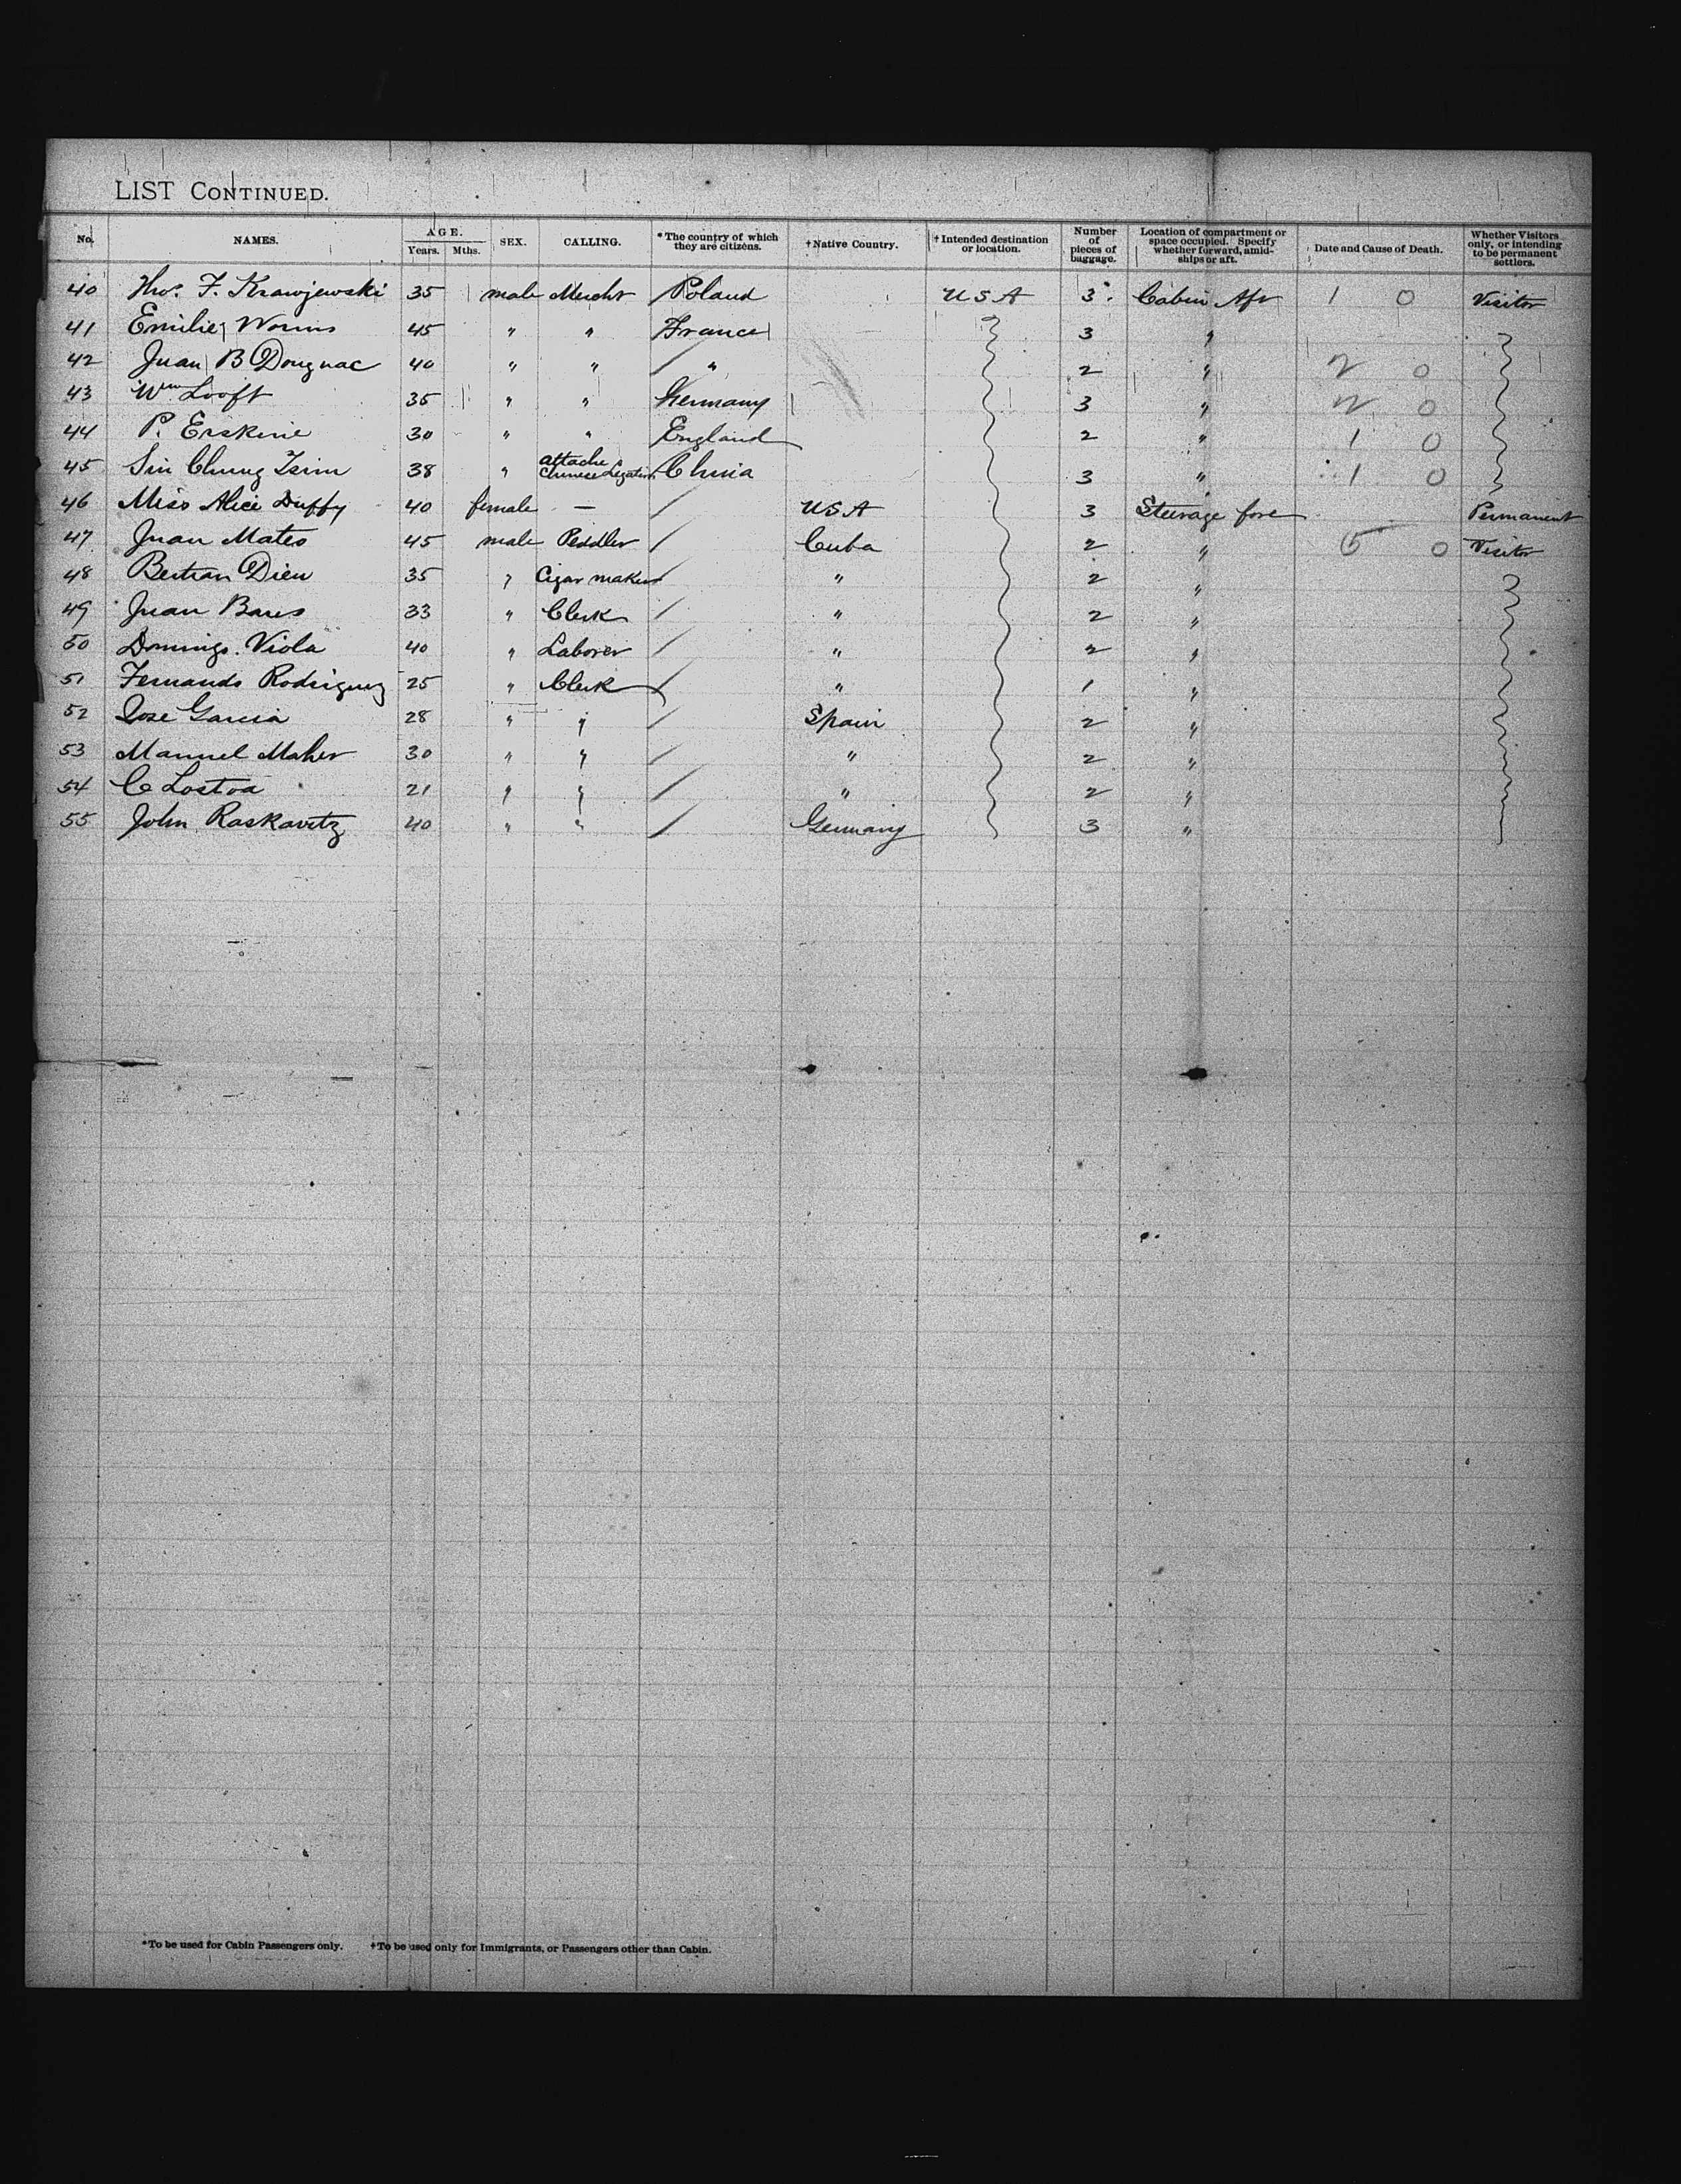 LIST CONTINUED.
No. NAMES. AGE. Years. Mths. SEX. CALLING. *The country of which they are citizens. †Native Country. †Intended destination or location. Number of pieces of baggage. Location of compartment or space occupied. Specify whether forward, amidships or aft. Date and Cause of Death. Whether Visitors only, or intending to be permanent settlers.
40 Thos. F. Krawjewski 35 male Mercht Poland USA 3 Cabin Aft 1 0 Visitor
41 Emilie Worms 45 " " France 3 "
42 Juan B Dougnac 40 " " " 2 " 2 0
43 Wm Looft 35 " " Germany 3 " 2 0
44 P. Erskine 30 " " England 2 " 1 0
45 Sin Chung 38 " attache Chinese Legation China 3 " 1 0
46 Miss Alice Duffy 40 female — / USA 3 Steerage fore Permanent
47 Juan Mateo 45 male Peddler / Cuba 2 " 5 0 Visitor
48 Bertran Dieu 35 " Cigar maker / " 2 "
49 Juan Bares 33 " Clerk / " 2 "
50 Domingo Viola 40 " Laborer / " 2 "
51 Fernando Rodriguez 25 " Clerk / " 1 "
52 Jose Garcia 28 " " / Spain 2 "
53 Manuel Maher 30 " " / " 2 "
54 C Lostoa 21 " " / " 2 "
55 John Raskavitz 40 " " / Germany 3 "
*To be used for Cabin Passengers only. †To be used only for Immigrants, or Passengers other than Cabin.